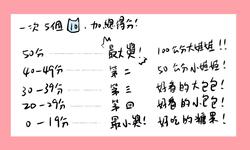 一次 5個 10.加總得分!
50分 最大獎! 100公分大娃娃!!
40-49分 第二 50公分小娃娃!
30-39分 第三 好看的大包包!
20-29分 第四 好看的小包包!
0-19分 最小獎! 好吃的糖果!